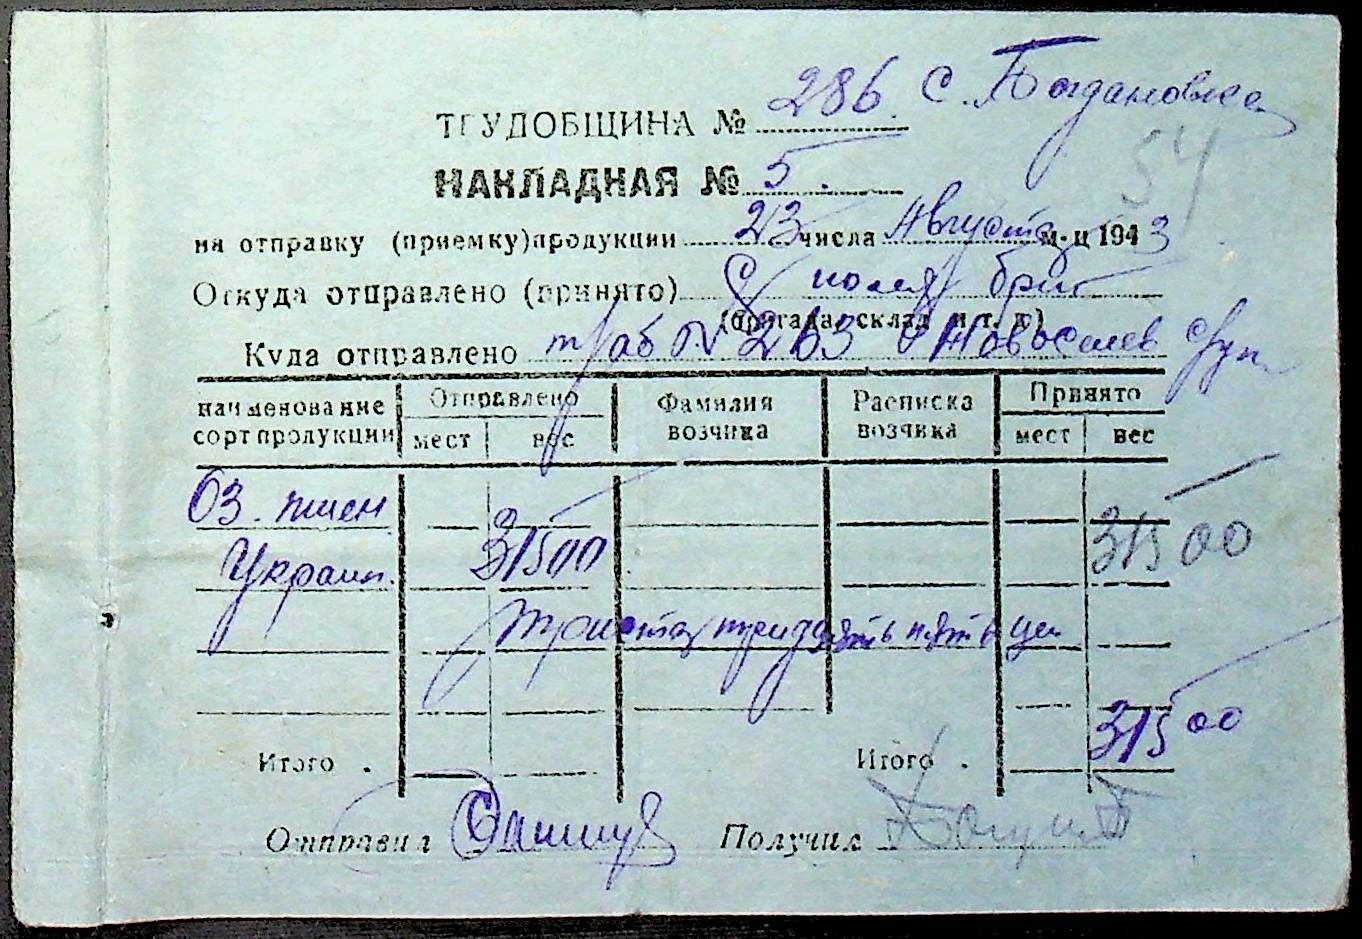 ТРУДОБЩИНА № 286 с. Богдановка
54
НАКЛАДНАЯ № 5
на отправку (приемку) продукции 23 числа Августа м-ц 1943
Откуда отправлено (принято) С поля бриг
(бригада, склад и т. д.)
Куда отправлено т/об № 263 Новоселев
наименование сорт продукции Отправлено мест вес Фамилия возчика Расписка возчика Принято мест вес
Оз. пшен
Украин. 31500 31500
Триста тридцать пять цен
31500
Итого . Итого .
Отправил Получил